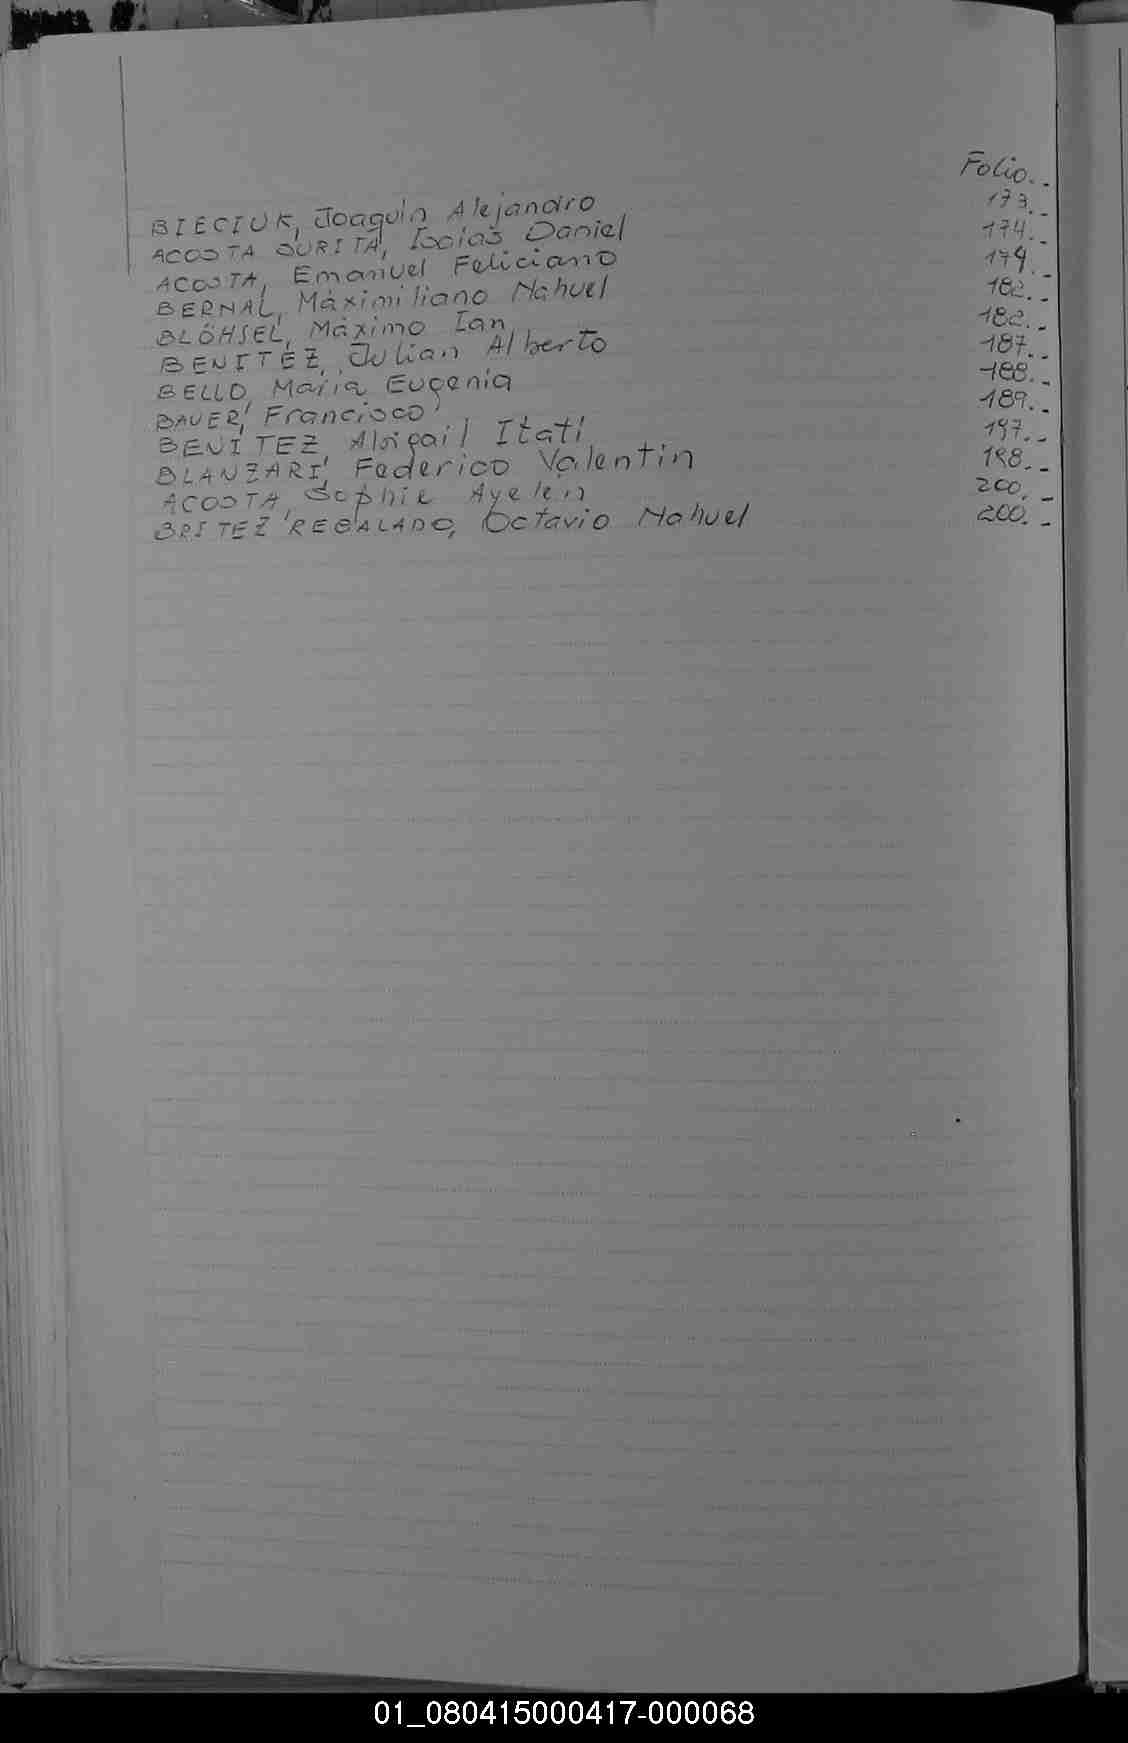 Folio..
BIECIUK, Joaquin Alejandro 173..
ACOSTA SURITA, Isaias Daniel 174..
ACOSTA, Emanuel Feliciano 179..
BERNAL, Máximiliano Nahuel 182..
BLOHSEL, Máximo Ian 182..
BENITEZ, Julian Alberto 187..
BELLO, Maria Eugenia 188..
BAUER, Francisco 189..
BENITEZ, Abigail Itatí 197..
BLANZARI, Federico Valentin 198..
ACOSTA, Sophie Ayelen 200..
BRITEZ REGALADO, Octavio Nahuel 200..
01_080415000417-000068